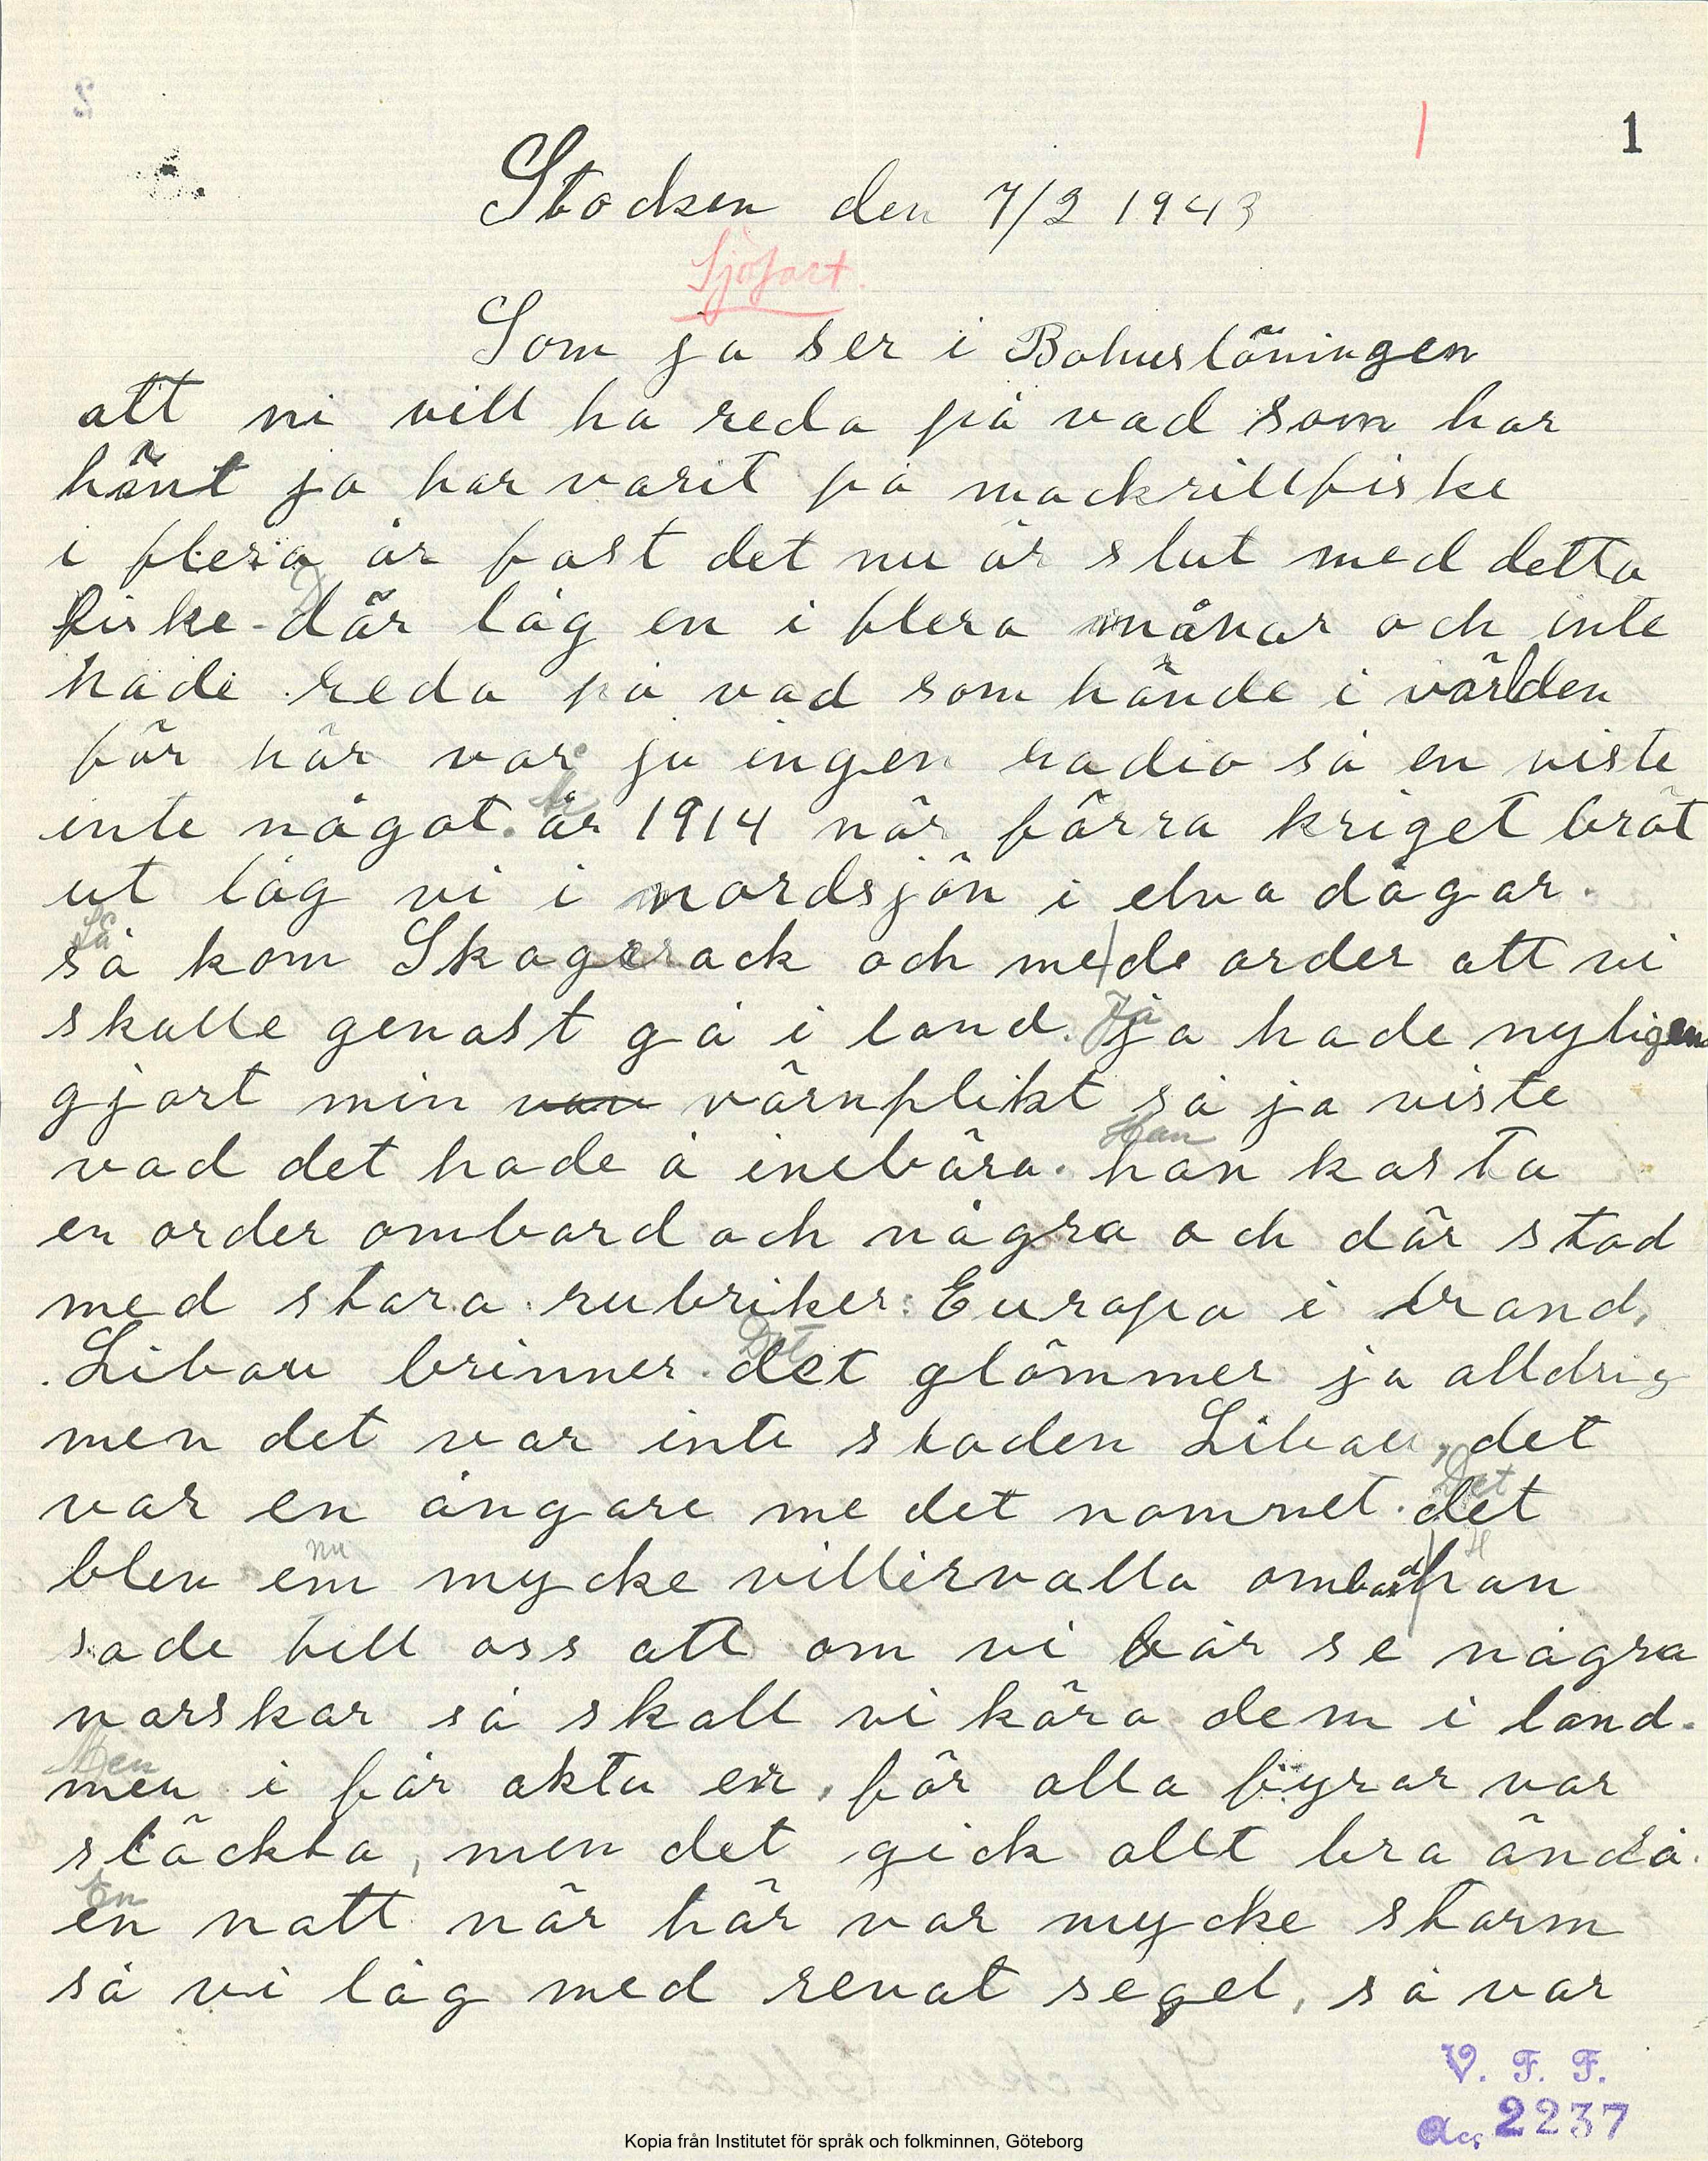 1
Stocken den 7/2 1943
Sjöfart.
Som ja ser i Bohusläningen
att ni vill ha reda på vad som har
hänt ja har varit på mackrillfiske
i flera år fast det nu är slut med detta
fiske - där låg en i flera månar och inte
hade reda på vad som hände i världen
för här var ju ingen radio så en viste
inte något. år 1914 när förra kriget bröt
ut låg vi i nordsjön i elva dagar.
så kom Skagerrack och me de order att vi
skulle genast gå i land. ja hade nyligen
gjort min värnplikt så ja viste
vad det hade å inebära. han kasta
en order ombord och några och där stod
med stora rubriker: Europa i brand,
Libau brinner. det glömmer ja alldrig
men det var inte staden Libau, det
var en ångare me det namnet. det
blev en mycke villervalla ombord han
sade till oss att om vi får se några
norskar så skall vi köra dem i land.
men i får akta er, för alla fyrar var
släckta, men det gick allt bra ändå.
en natt när här var mycke storm
så vi låg med revat segel, så var
V. F. F.
Acc. 2237
Kopia från Institutet för språk och folkminnen, Göteborg